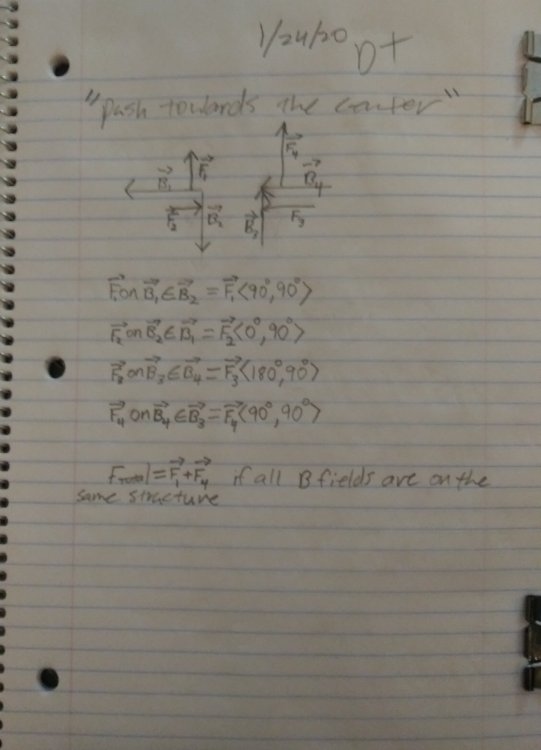 1/24/20 D+
"push towards the center"
F⃗₁ F⃗₄
B⃗₁ B⃗₄
F⃗₂ B⃗₂ B⃗₃ F₃
F⃗₁ on B⃗₁ ∈ B⃗₂ = F⃗₁⟨90°, 90°⟩
F⃗₂ on B⃗₂ ∈ B⃗₁ = F⃗₂⟨0°, 90°⟩
F⃗₃ on B⃗₃ ∈ B⃗₄ = F⃗₃⟨180°, 90°⟩
F⃗₄ on B⃗₄ ∈ B⃗₃ = F⃗₄⟨90°, 90°⟩
Ftotal = F⃗₁ + F⃗₄ if all B fields are on the
same structure